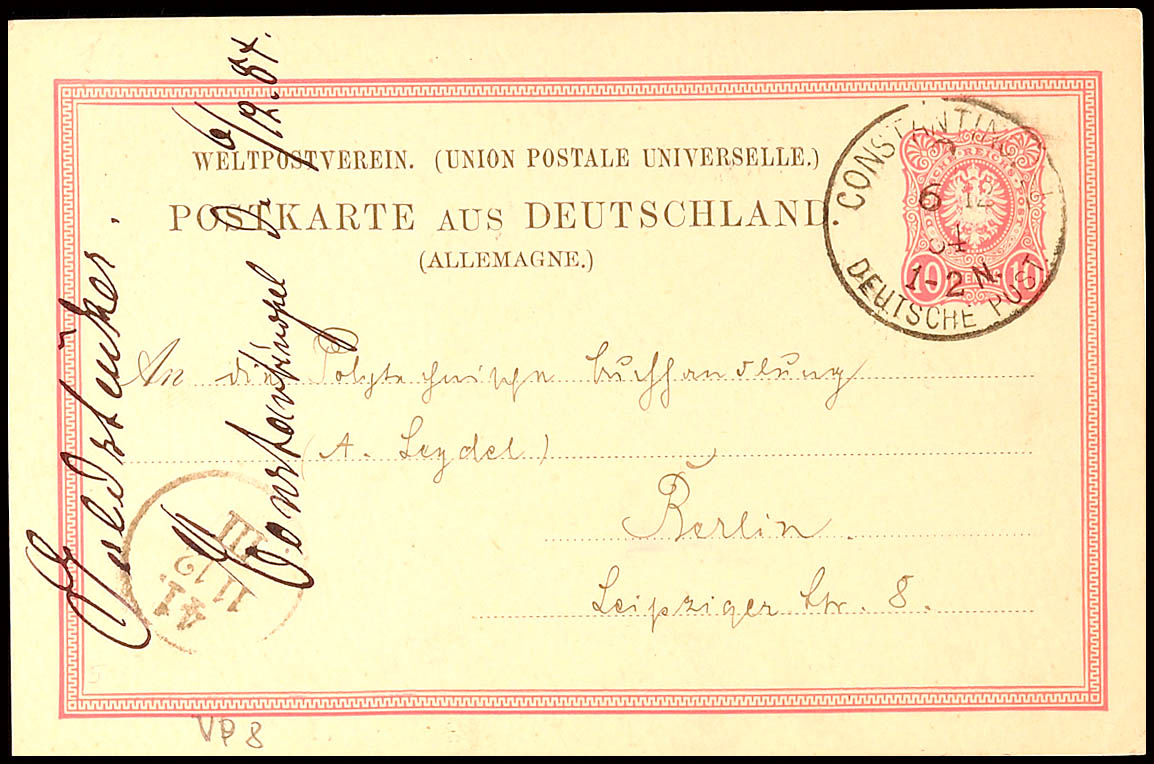 WELTPOSTVEREIN. (UNION POSTALE UNIVERSELLE.)
POSTKARTE AUS DEUTSCHLAND.
(ALLEMAGNE.)
CONSTANTINOPEL
6 12
84
1-2 N.
DEUTSCHE POST.
10 10
An die Polytechnische Buchhandlung
(A. Seydel)
Berlin.
Leipziger Str. 8.
Constantinopel d. 6/12.84.
41.
11 12
III
VP 8